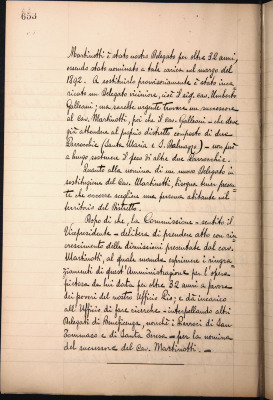 653
Martinotti è stato nostro Delegato per oltre 32 anni,
essendo stato nominato a tale carica nel marzo del
1892. A sostituirlo provvisoriamente è stato inca
ricato un Delegato viciniore, cioè il sig. cav. Umberto
Galleani; ma sarebbe urgente trovare un successore
al Cav. Martinotti, poi che il cav. Galleani - che deve
già attendere al proprio distretto, composto di due
Parrocchie (Santa Maria e S. Dalmazzo) - non può
a lungo sostenere il peso di altre due Parrocchie.
Quanto alla nomina di un nuovo Delegato in
sostituzione del Cav. Martinotti, bisogna tener presen
te che occorre scegliere una persona abitante nel
territorio del Distretto.
Dopo di che, la Commissione - sentito il
Vicepresidente - delibera di prendere atto con rin
crescimento delle dimissioni presentate dal cav.
Martinotti, al quale manda esprimere i ringra
ziamenti di quest'Amministrazione per l'opera
pietosa da lui data per oltre 32 anni a favore
dei poveri del nostro Ufficio Pio; e dà incarico
all'Ufficio di fare ricerche - interpellando altri
Delegati di Beneficenza, nonchè i Parroci di San
Tommaso e di Santa Teresa - per la nomina
del successore del Cav. Martinotti. -